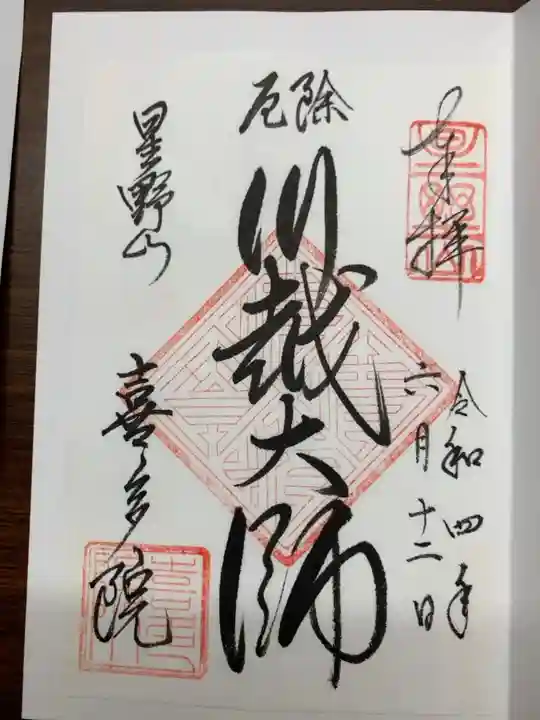 奉拝
令和四年
六月十二日
厄除
川越大師
星野山
喜多院